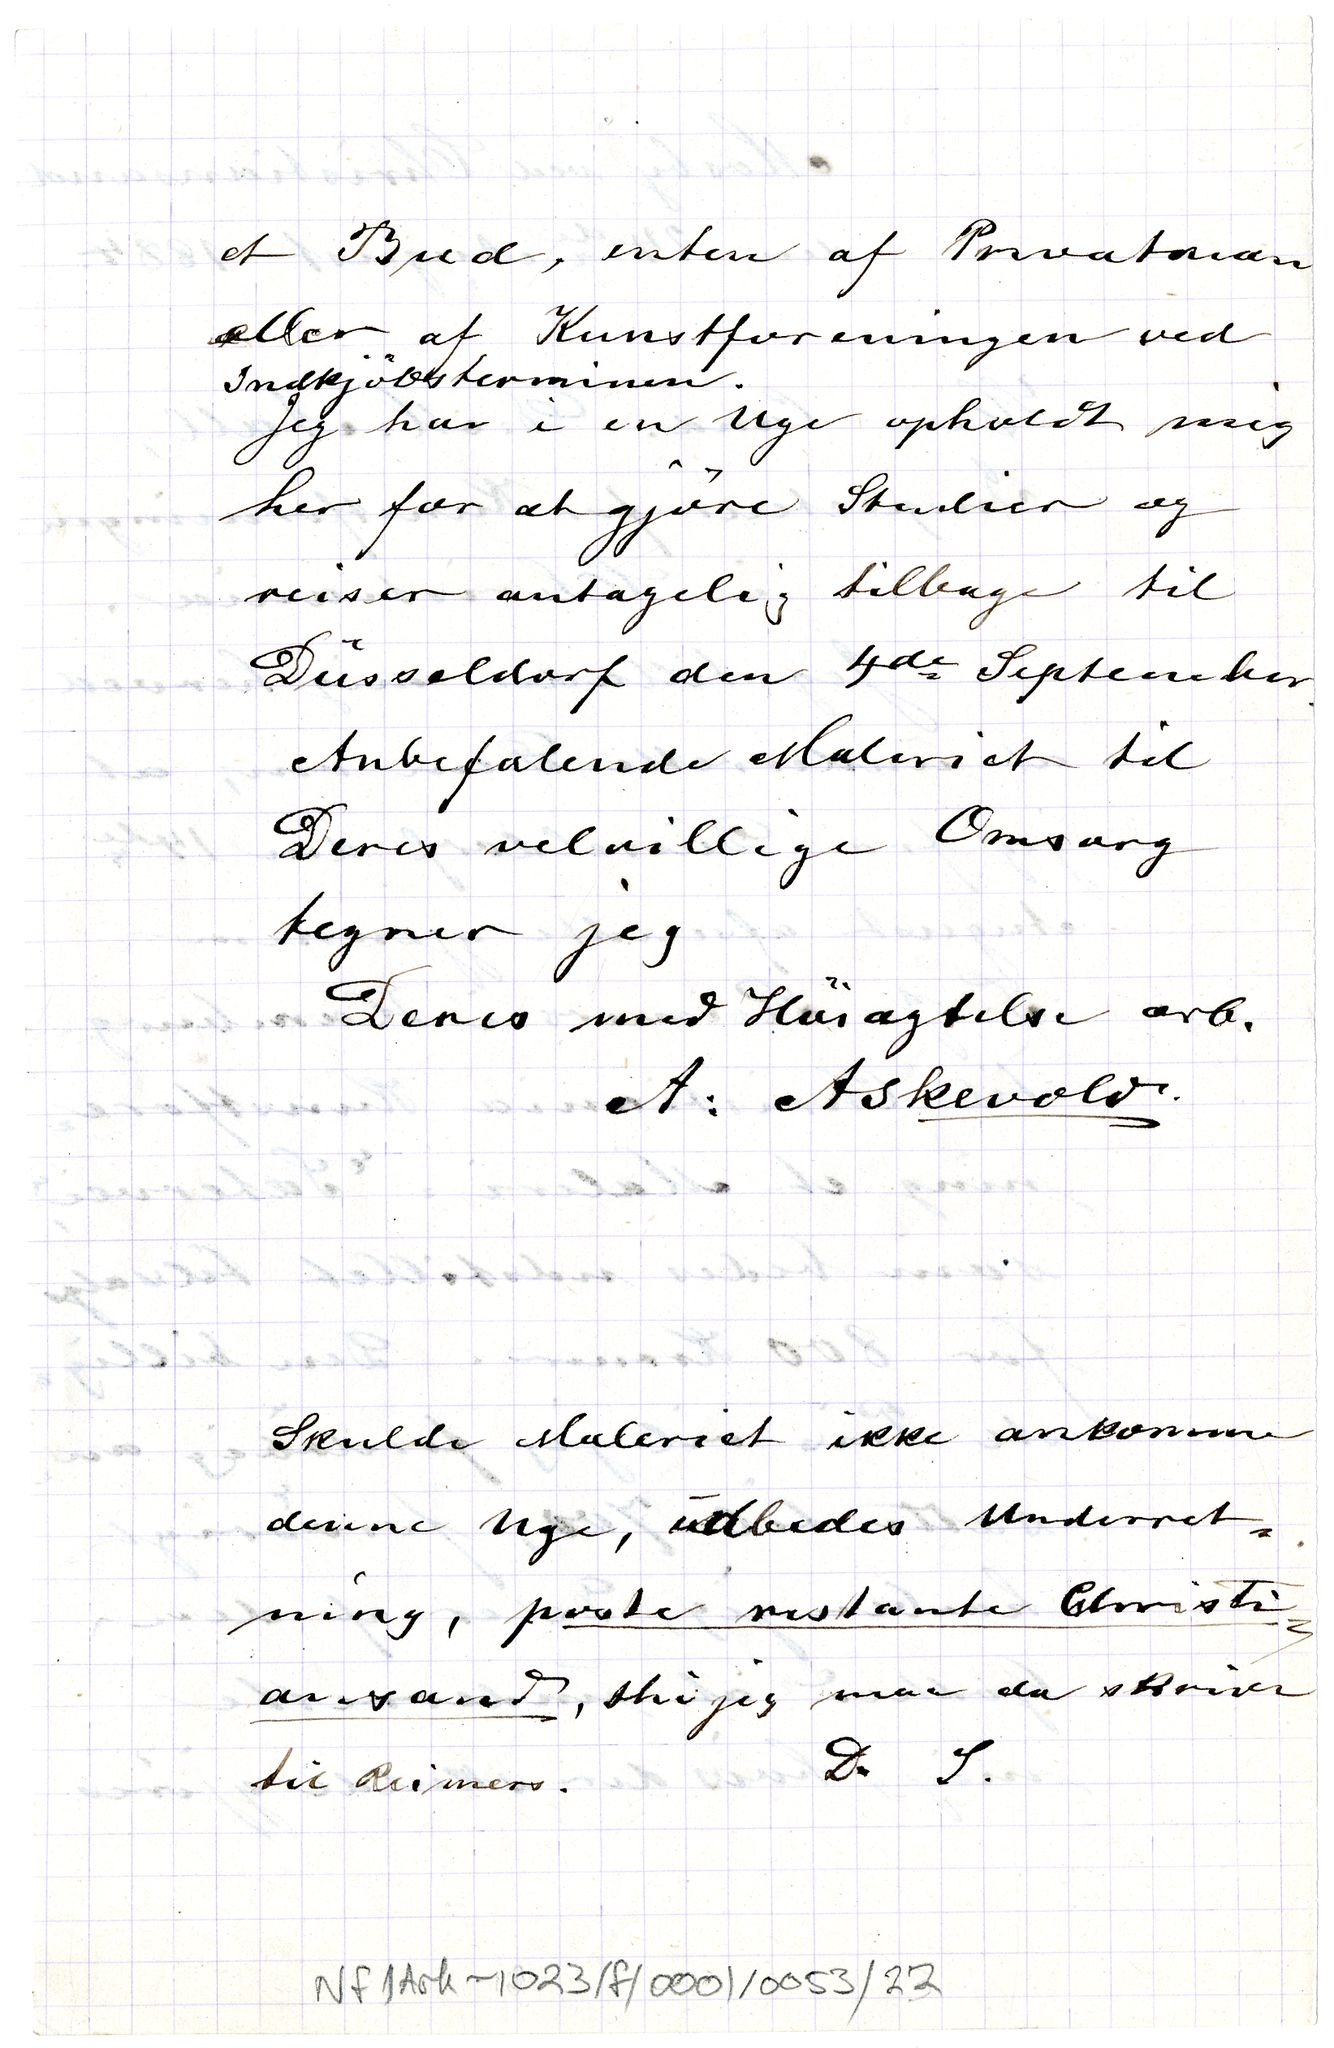 et Bud, enten af Privatman
eller af Kunstforeningen ved
Indkjöbsterminen.
Jeg har i en Uge opholdt mig
her for at gjöre Studier og
reiser antagelig tilbage til
Düsseldorf den 4de September.
Anbefalende Maleriet til
Deres velvillige Omsorg
tegner jeg
Deres med Höiagtelse arb.
A: Askevold.
Skulde Maleriet ikke ankomme
denne Uge, udbedes Underret=
ning, poste restante Christi=
ansand, thi jeg maa da skrive
til Reimers. D. S.
NF/Ark-1023/f/0001/0053/22